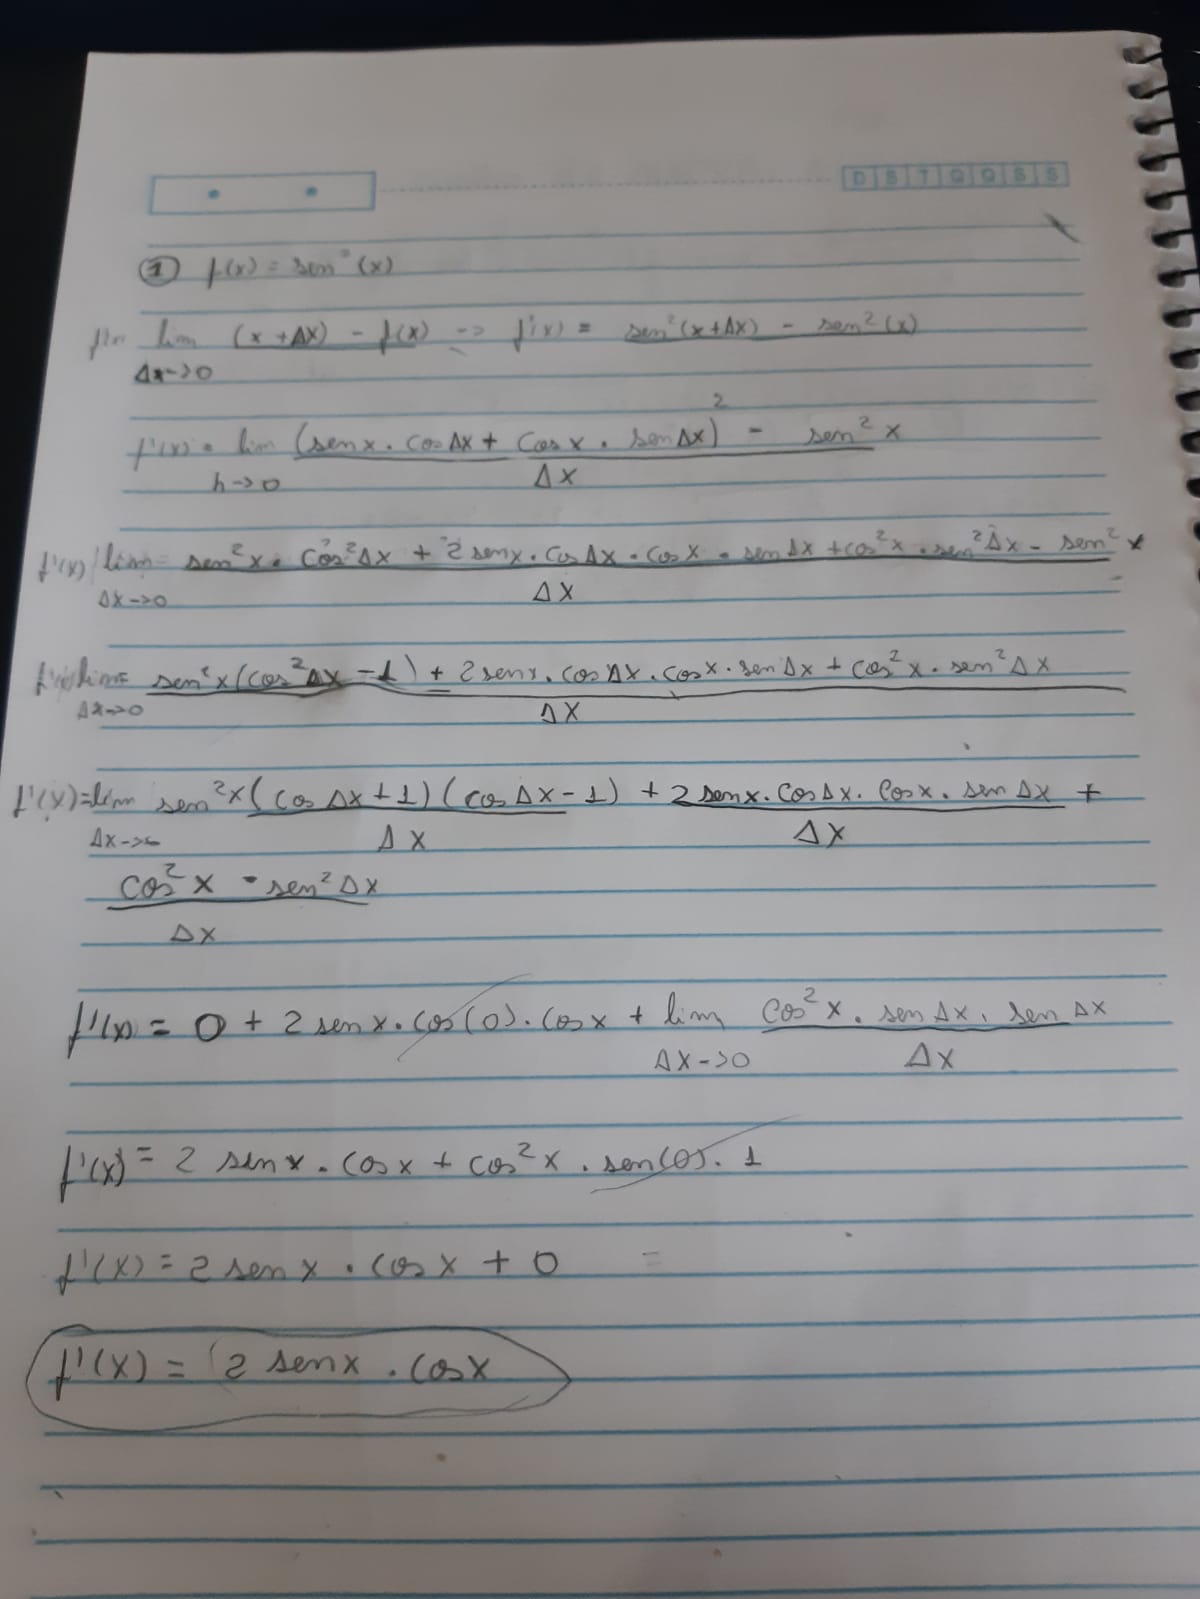 D S T Q Q S S
① f(x) = sen²(x)
lim (x + Δx) - f(x) -> f'(x) = sen²(x+Δx) - sen²(x)
Δx->0
f'(x) = lim (sen x . cos Δx + cos x . sen Δx)² - sen² x
h->0 Δx
f'(x) lim = sen²x . cos²Δx + 2 sen x . cos Δx . cos x . sen Δx + cos²x . sen²Δx - sen² x
Δx->0 Δx
f'(x) lim = sen²x (cos²Δx - 1) + 2 sen x . cos Δx . cos x . sen Δx + cos²x . sen²Δx
Δx->0 Δx
f'(x) = lim sen²x (cos Δx + 1) (cos Δx - 1) + 2 sen x . cos Δx . cos x . sen Δx +
Δx->0 Δx Δx
cos²x . sen²Δx
Δx
f'(x) = 0 + 2 sen x . cos(0) . cos x + lim cos²x . sen Δx . sen Δx
Δx->0 Δx
f'(x) = 2 sen x . cos x + cos²x . sen(0) . 1
f'(x) = 2 sen x . cos x + 0 =
f'(x) = 2 sen x . cos x